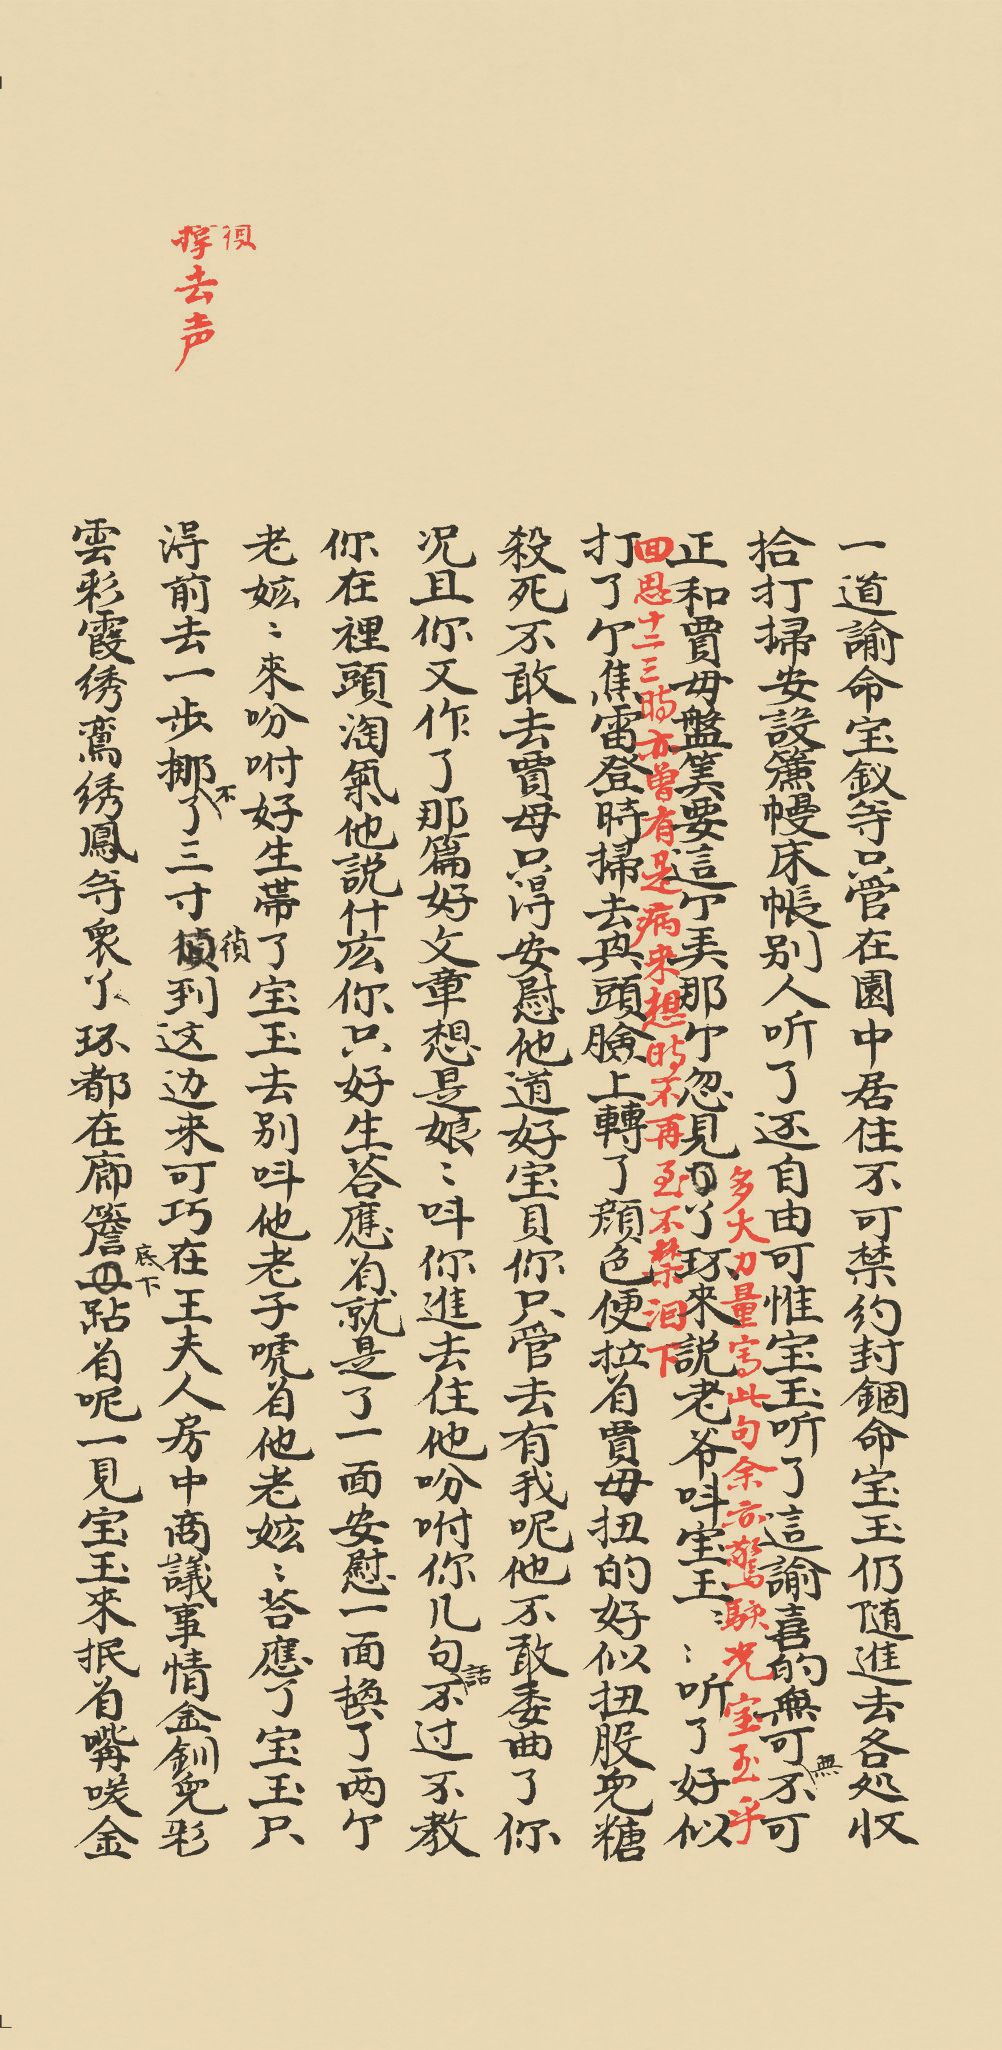 一道諭命宝釵等只管在園中居住不可禁約封錮命宝玉仍随進去各処收
拾打掃安設簾幔床帳别人听了还自由可惟宝玉听了這諭喜的無可不可
無
多大力量写此句余亦驚駭况宝玉乎
正和賈母盤筭要這个美那个忽見丫环來説老爷呌宝玉宝玉听了好似
回思十二三時亦曾有是病来想時不再至不禁泪下
打了个焦雷登時掃去興頭臉上轉了顔色便拉着賈母扭的好似扭股兒糖
殺死不敢去賈母只淂安慰他道好宝貝你只管去有我呢他不敢委曲了你
况且你又作了那篇好文章想是娘〻呌你進去住他吩咐你几句不过不教
話
你在裡頭淘氣他説什広你只好生荅應着就是了一面安慰一面換了两个
老嫆〻來吩咐好生帯了宝玉去别呌他老子唬着他老嫆〻荅應了宝玉只
淂前去一步挪了三寸到这边来可巧在王夫人房中商議事情金釧兒彩
不
雲彩霞绣鸞绣鳳等衆丫环都在廊簷站着呢一見宝玉來抿着嘴咲金
底下
去声